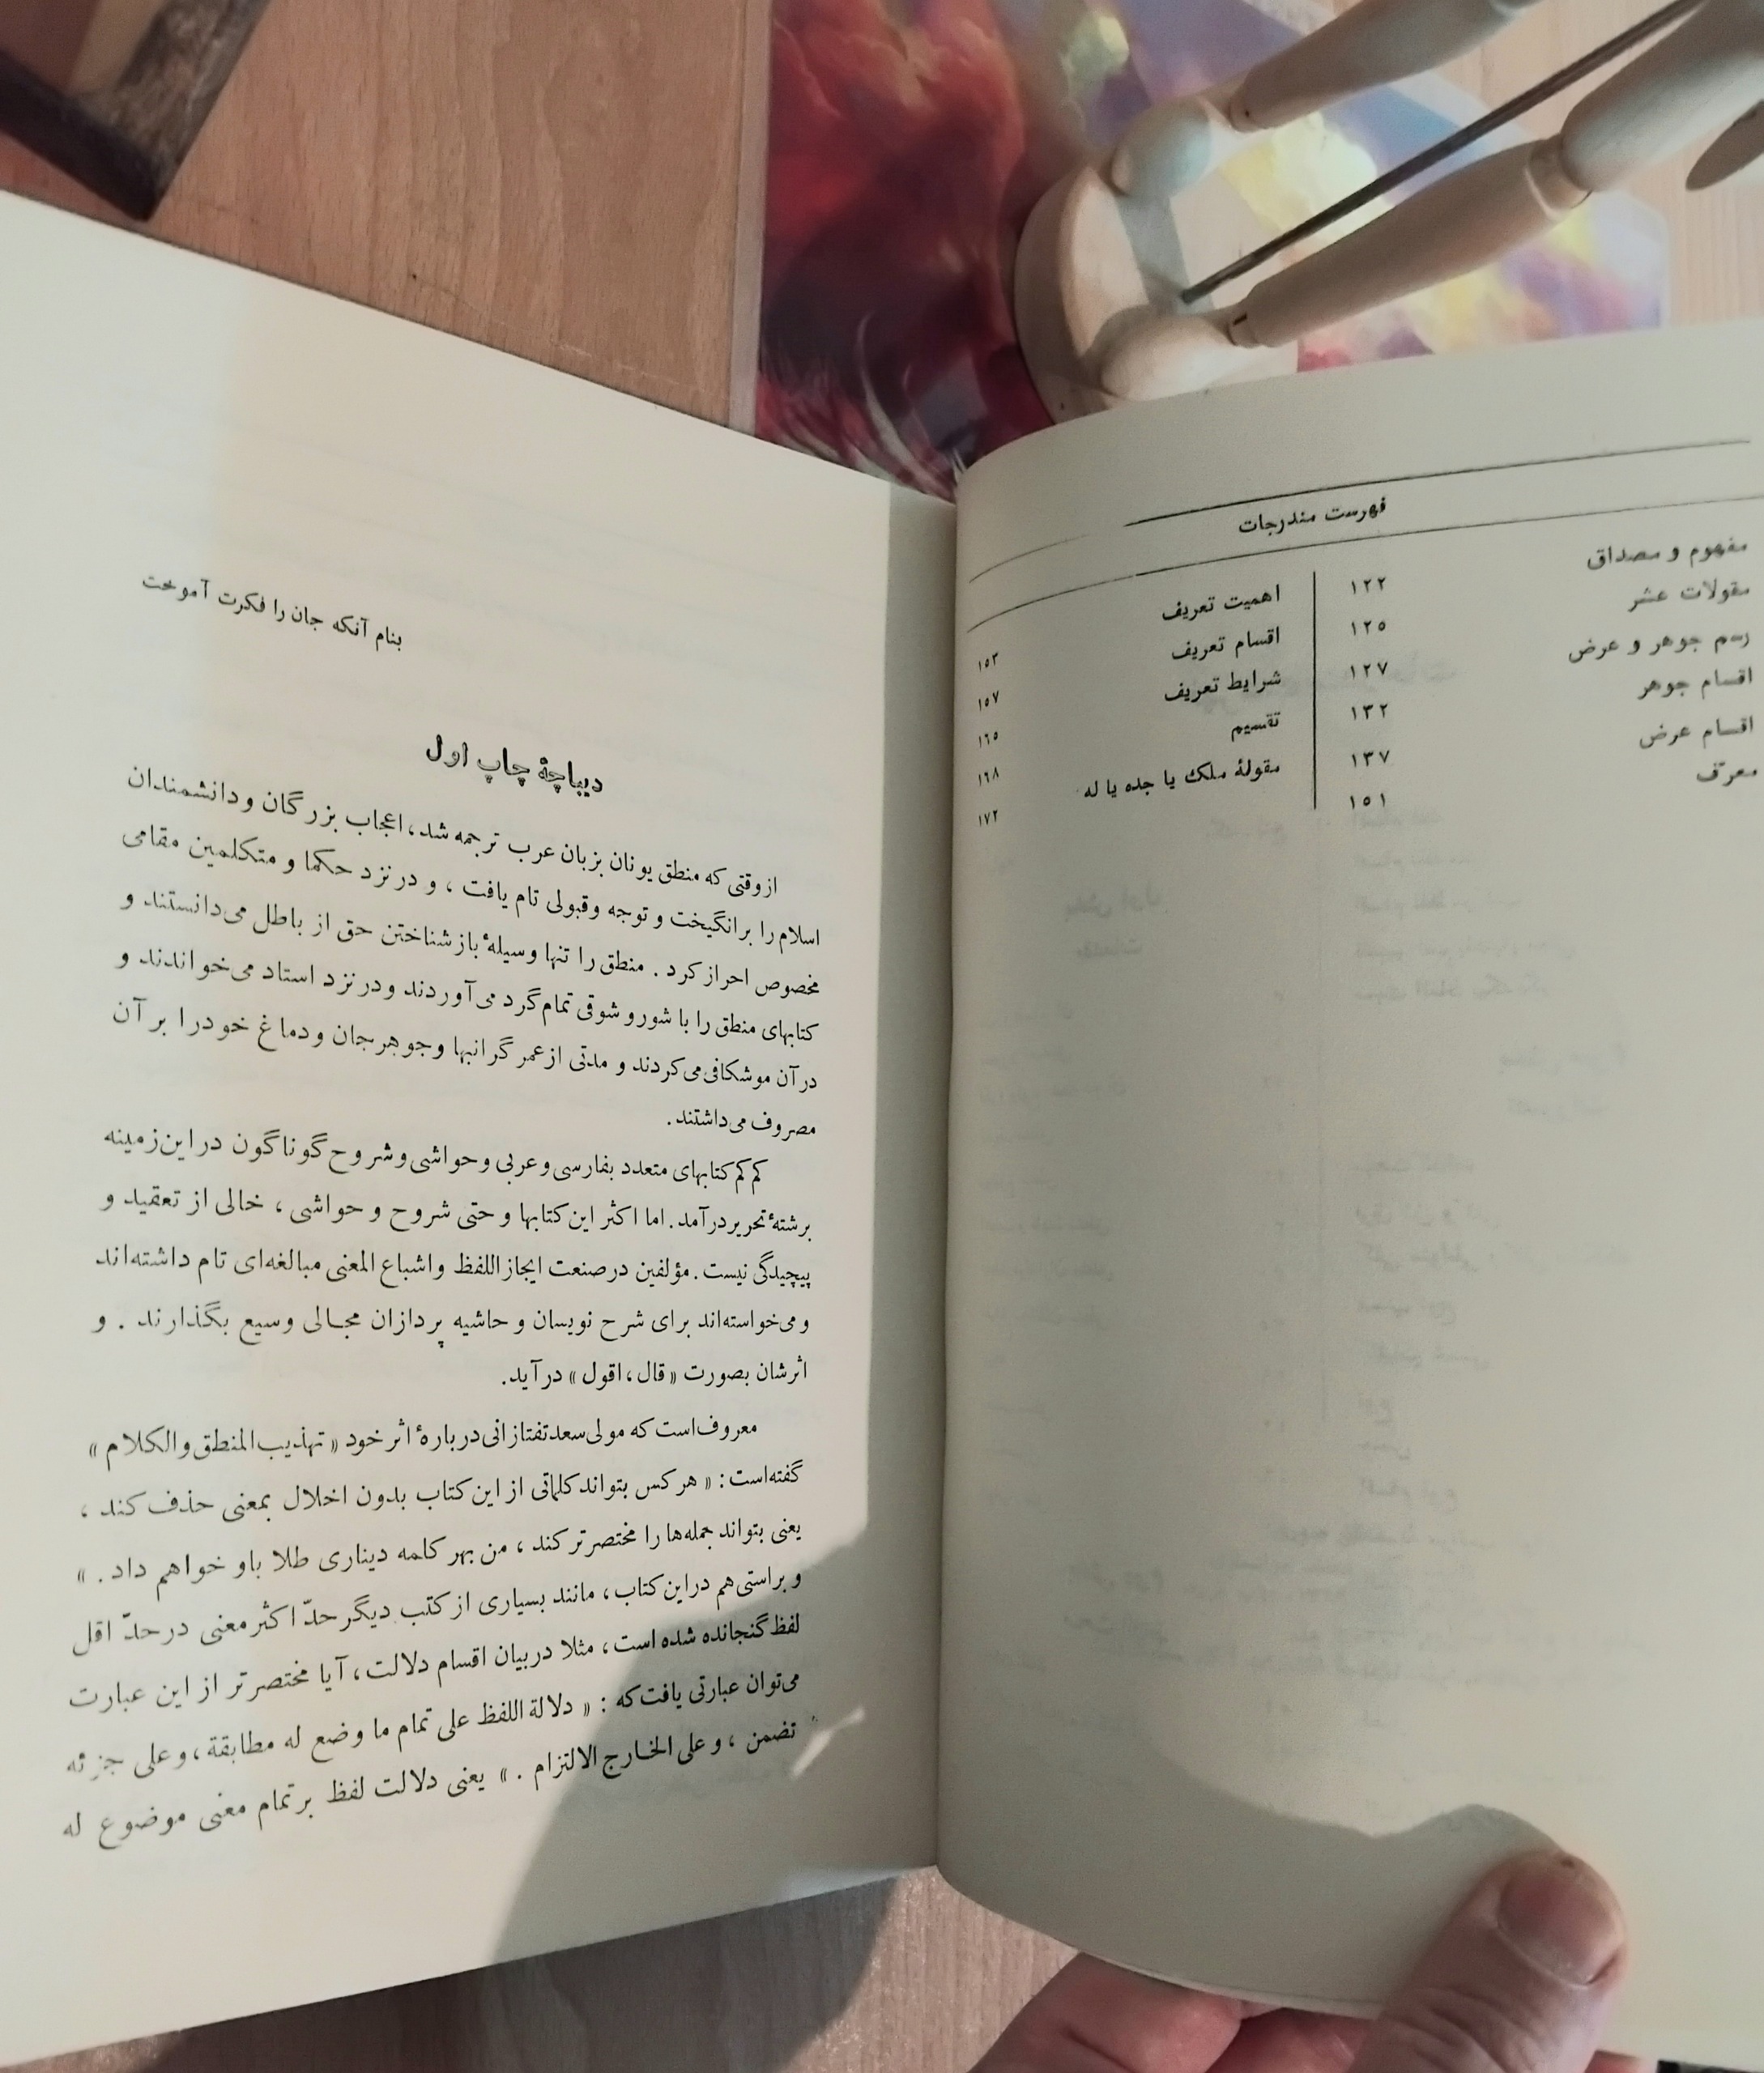 فهرست مندرجات
مفهوم و مصداق ۱۲۲
مقولات عشر ۱۲۵
رسم جوهر و عرض ۱۲۷
اقسام جوهر ۱۳۲
اقسام عرض ۱۳۷
معرّف ۱۵۱
اهمیت تعریف ۱۵۳
اقسام تعریف ۱۵۷
شرایط تعریف ۱۶۵
تقسیم ۱۶۸
مقولهٔ ملک یا جده یا له ۱۷۲
بنام آنکه جان را فکرت آموخت
دیباچهٔ چاپ اول
ازوقتی که منطق یونان بزبان عرب ترجمه شد، اعجاب بزرگان و دانشمندان
اسلام را برانگیخت و توجه وقبولی تام یافت ، و در نزد حکما و متکلمین مقامی
مخصوص احراز کرد . منطق را تنها وسیلهٔ بازشناختن حق از باطل می‌دانستند و
کتابهای منطق را با شور و شوقی تمام گرد می‌آوردند و در نزد استاد می‌خواندند و
در آن موشکافی می‌کردند و مدتی از عمر گرانبها و جوهر جان و دماغ خود را بر آن
مصروف می‌داشتند.
کم‌کم کتابهای متعدد بفارسی و عربی و حواشی و شروح گوناگون در این زمینه
برشتهٔ تحریر درآمد. اما اکثر این کتابها و حتی شروح و حواشی ، خالی از تعقید و
پیچیدگی نیست . مؤلفین در صنعت ایجاز اللفظ و اشباع المعنی مبالغه‌ای تام داشته‌اند
و می‌خواسته‌اند برای شرح نویسان و حاشیه پردازان مجالی وسیع بگذارند . و
اثرشان بصورت «قال ، اقول» درآید.
معروف است که مولی سعد تفتازانی دربارهٔ اثر خود «تهذیب المنطق والکلام»
گفته‌است : «هرکس بتواند کلماتی از این کتاب بدون اخلال بمعنی حذف کند ،
یعنی بتواند جمله‌ها را مختصرتر کند ، من بهر کلمه دیناری طلا باو خواهم داد . »
و براستی هم در این کتاب ، مانند بسیاری از کتب دیگر حدّ اکثر معنی در حدّ اقل
لفظ گنجانده شده است ، مثلا در بیان اقسام دلالت ، آیا مختصرتر از این عبارت
می‌توان عبارتی یافت که : « دلالة اللفظ علی تمام ما وضع له مطابقة ، و علی جزئه
تضمن ، و علی الخارج الالتزام . » یعنی دلالت لفظ بر تمام معنی موضوع له